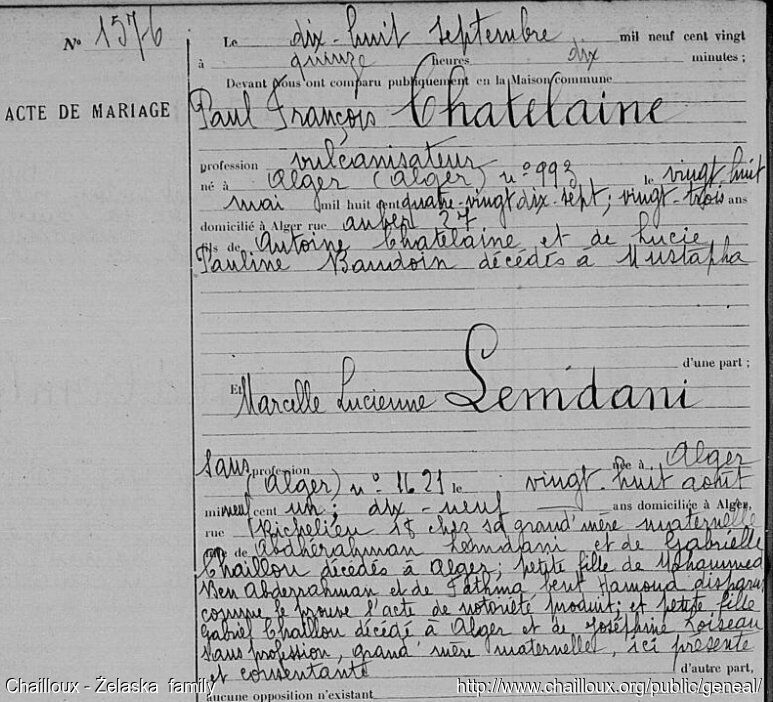 N° 1576
ACTE DE MARIAGE
Le dix-huit septembre mil neuf cent vingt
à quinze heures dix minutes ;
Devant Nous ont comparu publiquement en la Maison commune
Paul François Chatelaine
profession vulcanisateur
né à Alger (Alger) n° 993 le vingt huit
mai mil huit cent quatre-vingt dix-sept ; vingt-trois ans
domicilié à Alger rue auber 27
fils de Antoine Chatelaine et de Lucie
Pauline Baudoin décédés à Mustapha
d'une part ;
Et Marcelle Lucienne Lemdani
sans profession née à Alger
(Alger) n° 1621 le vingt-huit août
mil neuf cent un ; dix-neuf ans domiciliée à Alger,
rue Richelieu 18 chez sa grand'mère maternelle
de Abdhérahman Lemdani et de Gabrielle
Chaillou décédés à Alger ; petite fille de Mohammed
Ben Abderrahman et de Fathma bent Hamoud disparus
comme le prouve l'acte de notoriété produit ; et petite fille
Gabriel Chaillou décédé à Alger et de Joséphine Loiseau
sans profession, grand'mère maternelle, ici présente
et consentante d'autre part,
aucune opposition n'existant
Chailloux - Żelaska family
http://www.chailloux.org/public/geneal/